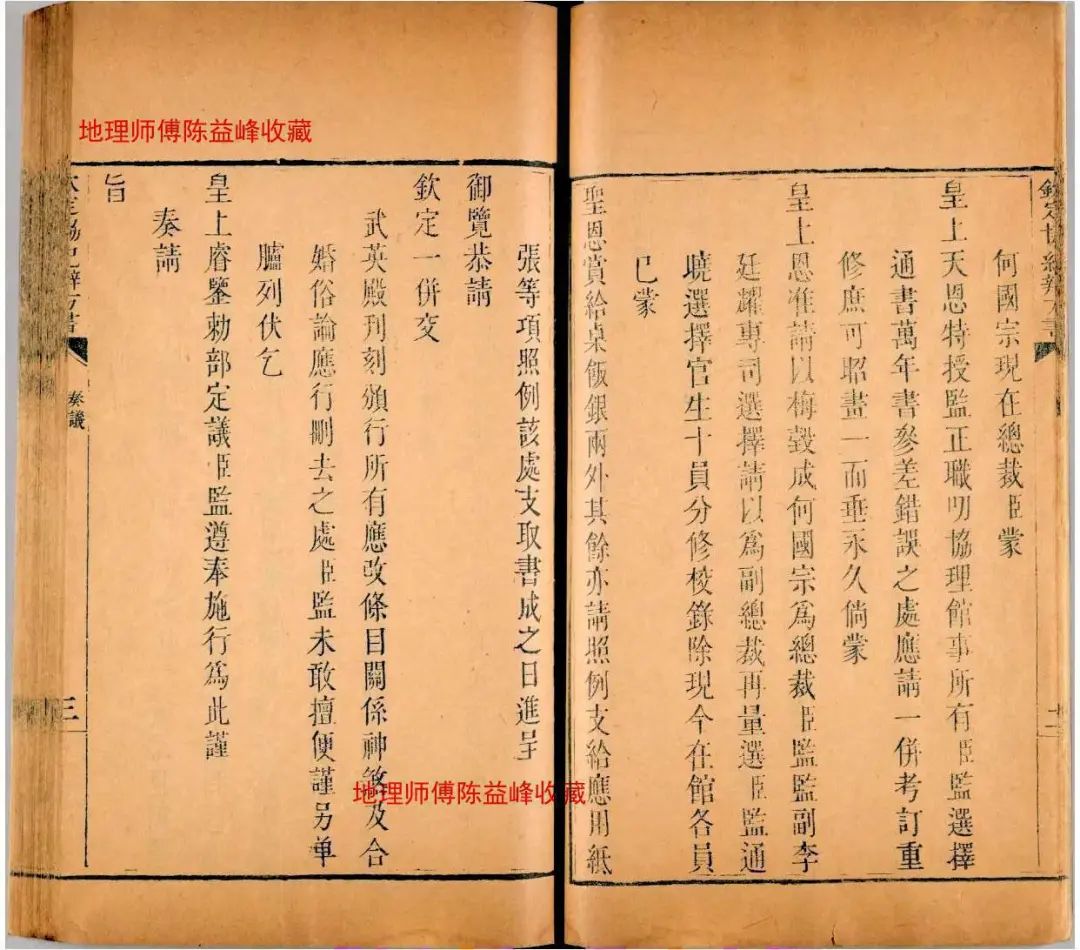 欽定協紀辨方書
何國宗現在總裁臣蒙
皇上天恩特授監正職叨協理館事所有臣監選擇
通書萬年書參差錯誤之處應請一併考訂重
修庶可昭畫一而垂永久倘蒙
皇上恩准請以梅瑴成何國宗爲總裁臣監監副李
廷耀專司選擇請以爲副總裁再量選臣監通
曉選擇官生十員分修校錄除現今在館各員
已蒙
聖恩賞給桌飯銀兩外其餘亦請照例支給應用紙
張等項照例該處支取書成之日進呈
御覽恭請
欽定一併交
武英殿刊刻頒行所有應改條目關係神煞及合
婚俗論應行刪去之處臣監未敢擅便謹另单
臚列伏乞
皇上睿鑒勅部定議臣監遵奉施行爲此謹
奏請
旨
欽定協紀辨方書
奏議
三
地理师傅陈益峰收藏
地理师傅陈益峰收藏